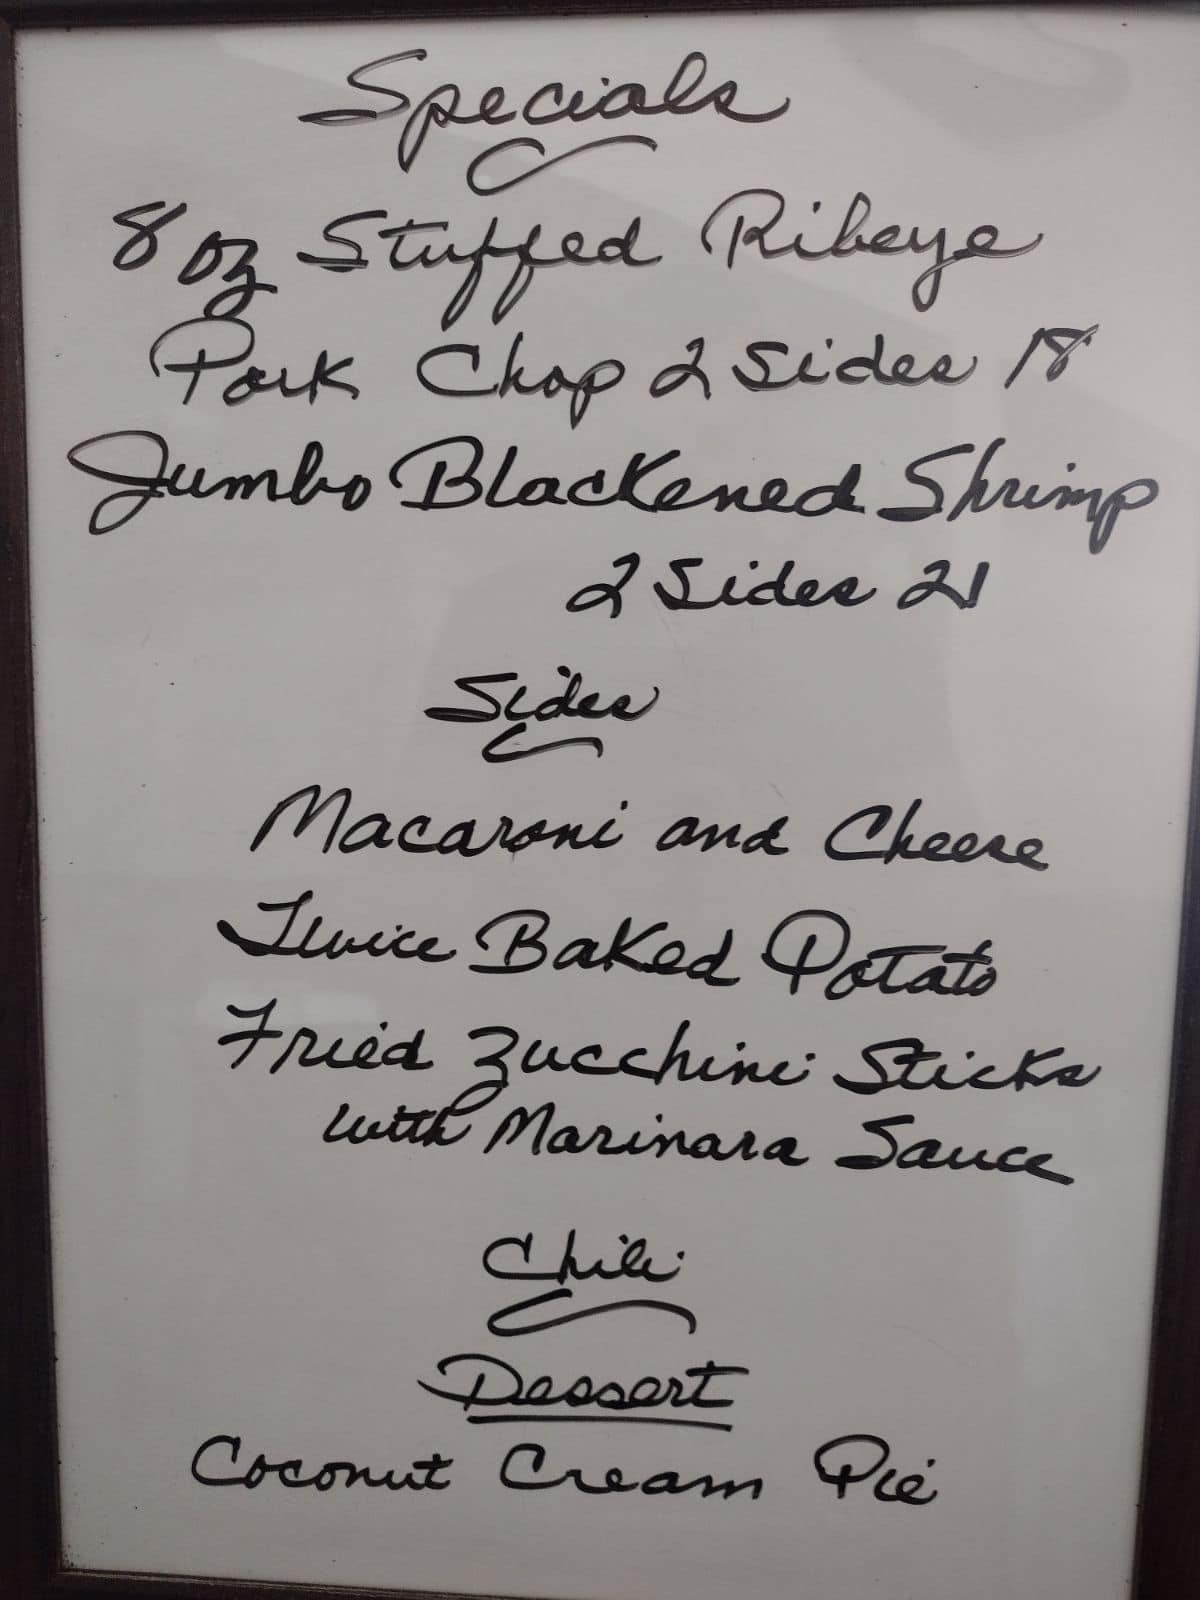 Specials
8 oz Stuffed Ribeye
Pork Chop 2 Sides 18
Jumbo Blackened Shrimp
2 Sides 21
Sides
Macaroni and Cheese
Twice Baked Potato
Fried Zucchini Sticks
with Marinara Sauce
Chili
Dessert
Coconut Cream Pie